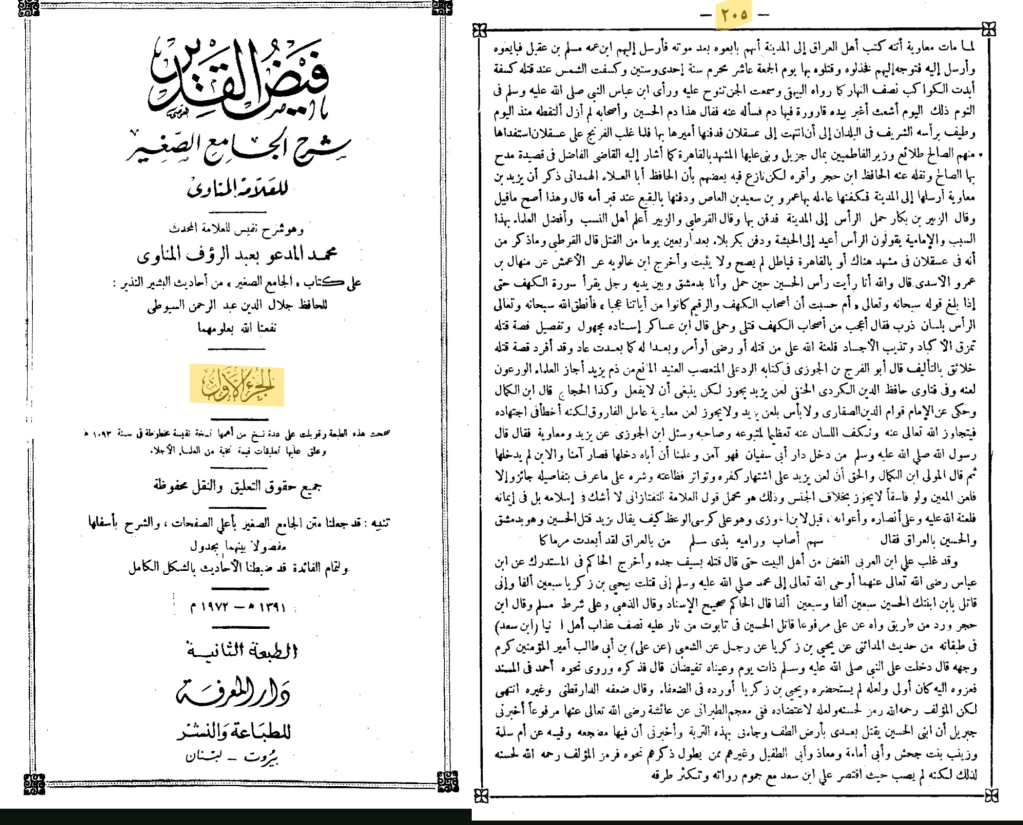 فيض القدير
شرح الجامع الصغير
للعلامة المناوى
وهو شرح نفيس للعلامة المحدث
محمد المدعو بعبد الرؤف المناوى
على كتاب «الجامع الصغير» من أحاديث البشير النذير :
للحافظ جلال الدين عبد الرحمن السيوطى
نفعنا الله بعلومهما
الجزء الأول
صححت هذه الطبعة وقوبلت على عدة نسخ من أهمها نسخة نفيسة مخطوطة فى سنة ١٠٩٣ ه
وعلق عليها تعليقات قيمة نخبة من العلماء الأجلاء.
جميع حقوق التعليق والنقل محفوظة
تنبيه : قد جعلنا متن الجامع الصغير بأعلى الصفحات ، والشرح بأسفلها
مفصولا بينهما بجدول
ولتمام الفائدة قد ضبطنا الأحاديث بالشكل الكامل
١٣٩١ ه – ١٩٧٢ م
الطبعة الثانية
دار المعرفة
للطباعة والنشر
بيروت – لبنان
– ٢٠٥ –
لما مات معاوية أتته كتب أهل العراق إلى المدينة أنهم بايعوه بعد موته فأرسل إليهم ابن عمه مسلم بن عقيل فبايعوه
وأرسل إليه فتوجه إليهم فخذلوه وقتلوه بها يوم الجمعة عاشر محرم سنة إحدى وستين وكسفت الشمس عند قتله كسفة
أبدت الكواكب نصف النهار كما رواه البيهقى وسمعت الجن تنوح عليه ورأى ابن عباس النبي صلى الله عليه وسلم فى
النوم ذلك اليوم أشعث أغبر بيده قارورة فيها دم فسأله عنه فقال هذا دم الحسين وأصحابه لم أزل ألتقطه منذ اليوم
وطيف برأسه الشريف فى البلدان إلى أن انتهت إلى عسقلان فدفنها أميرها بها فلما غلب الفرنج على عسقلان استفداها
منهم الصالح طلائع وزير الفاطميين بمال جزيل وبنى عليها المشهد بالقاهرة كما أشار إليه القاضى الفاضل فى قصيدة مدح
بها الصالح ونقله عنه الحافظ ابن حجر وأقره لكن نازع فيه بعضهم بأن الحافظ أبا العلاء الهمدانى ذكر أن يزيد بن
معاوية أرسلها إلى المدينة فكفنها عامله بها عمرو بن سعيد بن العاص ودفنها بالبقيع عند قبر أمه قال وهذا أصح ماقيل
وقال الزبير بن بكار حمل الرأس إلى المدينة فدفن بها وقال القرطبى والزبير أعلم أهل النسب وأفضل العلماء بهذا
السبب والإمامية يقولون الرأس أعيد إلى الجثة ودفن بكربلاء بعد أربعين يوما من القتل قال القرطبى وما ذكر من
أنه فى عسقلان فى مشهد هناك أو بالقاهرة فباطل لم يصح ولا يثبت وأخرج ابن خالويه عن الأعمش عن منهال بن
عمرو الاسدى قال والله أنا رأيت رأس الحسين حين حمل وأنا بدمشق وبين يديه رجل يقرأ سورة الكهف حتى
إذا بلغ قوله سبحانه وتعالى «أم حسبت أن أصحاب الكهف والرقيم كانوا من آياتنا عجبا» فأنطق الله سبحانه وتعالى
الرأس بلسان ذرب فقال أعجب من أصحاب الكهف قتلى وحملى قال ابن عساكر إسناده مجهول وتفصيل قصة قتله
تمزق الأكباد وتذيب الأجساد فلعنة الله على من قتله أو رضى أو أمر وبعدا له كما بعدت عاد وقد أفرد قصة قتله
خلائق بالتأليف قال أبو الفرج بن الجوزى فى كتابه الرد على المتعصب العنيد المانع من ذم يزيد أجاز العلماء الورعون
لعنه وفى فتاوى حافظ الدين الكردى الحنفى لعن يزيد يجوز لكن ينبغى أن لا يفعل وكذا الحجاج قال ابن الكمال
وحكى عن الإمام قوام الدين الصفارى ولا بأس بلعن يزيد ولا يجوز لعن معاوية عامل الفاروق لكنه أخطأ فى اجتهاده
فيتجاوز الله تعالى عنه ونكف اللسان عنه تعظيما لمتبوعه وصاحبه وسئل ابن الجوزى عن يزيد ومعاوية فقال قال
رسول الله صلى الله عليه وسلم من دخل دار أبى سفيان فهو آمن وعلمنا أن أباه دخلها فصار آمنا والابن لم يدخلها
ثم قال المولى ابن الكمال والحق أن لعن يزيد على اشتهار كفره وتواتر فظاعته وشره على ماعرف بتفاصيله جائز وإلا
فلعن المعين ولو فاسقا لا يجوز بخلاف الجنس وذلك هو محمل قول العلامة التفتازانى لا أشك فى إسلامه بل فى إيمانه
فلعنة الله عليه وعلى أنصاره وأعوانه ، قيل لابن الجوزى وهو على كرسى الوعظ كيف يقال يزيد قتل الحسين وهو بدمشق
والحسين بالعراق فقال سهم أصاب وراميه بذى سلم من بالعراق لقد أبعدت مرماكا
وقد غلب على ابن العربى الغض من أهل البيت حتى قال قتله بسيف جده وأخرج الحاكم فى المستدرك عن ابن
عباس رضى الله تعالى عنهما أوحى الله تعالى إلى محمد صلى الله عليه وسلم إنى قتلت بيحيى بن زكريا سبعين ألفا وإنى
قاتل بابن ابنتك الحسين سبعين ألفا وسبعين ألفا قال الحاكم صحيح الإسناد وقال الذهبى وعلى شرط مسلم وقال ابن
حجر ورد من طريق واه عن على مرفوعا قاتل الحسين فى تابوت من نار عليه نصف عذاب أهل الدنيا (ابن سعد)
فى طبقاته من حديث المدائنى عن يحيى بن زكريا عن رجل عن الشعبى (عن على) بن أبى طالب أمير المؤمنين كرم
وجهه قال دخلت على النبى صلى الله عليه وسلم ذات يوم وعيناه تفيضان قال فذكره وروى نحوه أحمد فى المسند
فعزوه اليه كان أولى ولعله لم يستحضره ويحيى بن زكريا أورده فى الضعفاء وقال ضعفه الدارقطنى وغيره انتهى
لكن المؤلف رحمه الله رمز لحسنه ولعله لاعتضاده ففى معجم الطبرانى عن عائشة رضى الله تعالى عنها مرفوعا أخبرنى
جبريل أن ابنى الحسين يقتل بعدى بأرض الطف وجاءنى بهذه التربة وأخبرنى أن فيها مضجعه وفيه عن أم سلمة
وزينب بنت جحش وأبى أمامة ومعاذ وأبى الطفيل وغيرهم ممن يطول ذكرهم نحوه فرمز المؤلف رحمه الله لحسنه
لذلك لكنه لم يصب حيث اقتصر على ابن سعد مع جموم رواته وتكثر طرقه